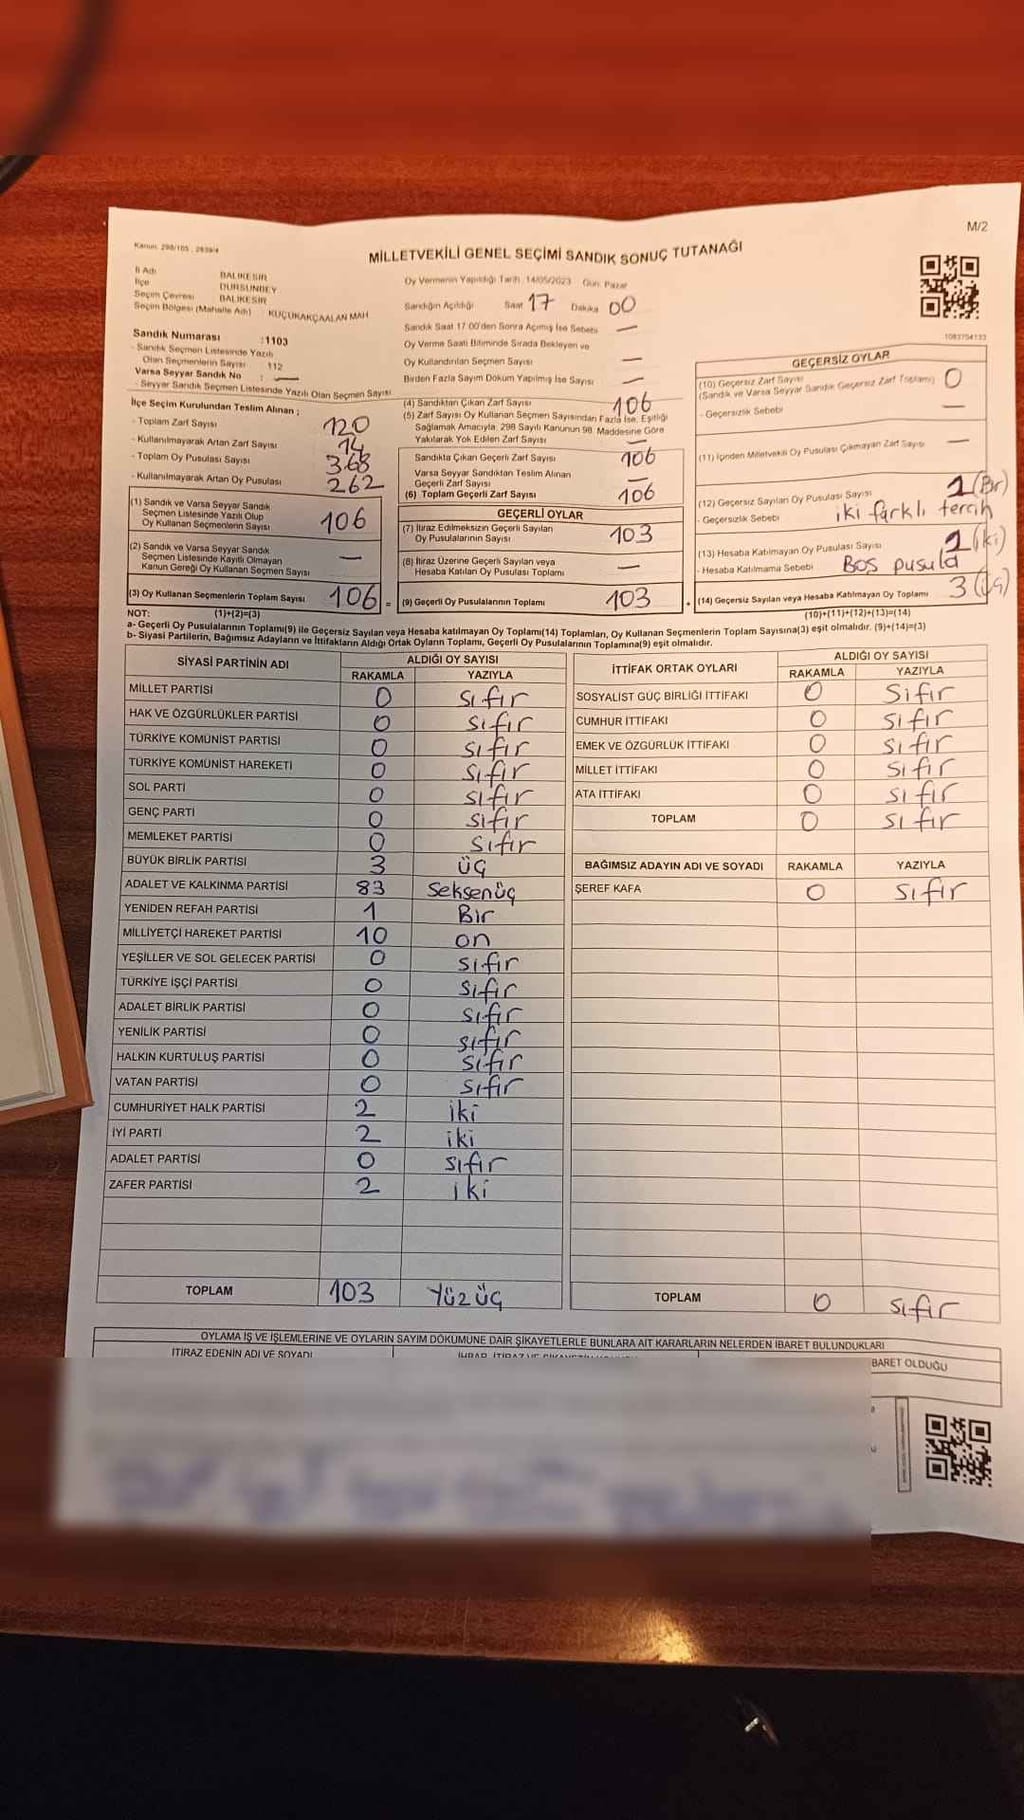 M/2
Kanun: 298/105 , 2839/4
MİLLETVEKİLİ GENEL SEÇİMİ SANDIK SONUÇ TUTANAĞI
İl Adı BALIKESİR
İlçe DURSUNBEY
Seçim Çevresi BALIKESİR
Seçim Bölgesi (Mahalle Adı) KÜÇÜKAKÇAALAN MAH
Sandık Numarası :1103
Sandık Seçmen Listesinde Yazılı
Olan Seçmenlerin Sayısı 112
Varsa Seyyar Sandık No : —
- Seyyar Sandık Seçmen Listesinde Yazılı Olan Seçmen Sayısı
İlçe Seçim Kurulundan Teslim Alınan ;
- Toplam Zarf Sayısı 120
- Kullanılmayarak Artan Zarf Sayısı 14
- Toplam Oy Pusulası Sayısı 368
- Kullanılmayarak Artan Oy Pusulası 262
(1) Sandık ve Varsa Seyyar Sandık
Seçmen Listesinde Yazılı Olup
Oy Kullanan Seçmenlerin Sayısı 106
(2) Sandık ve Varsa Seyyar Sandık
Seçmen Listesinde Kayıtlı Olmayan
Kanun Gereği Oy Kullanan Seçmen Sayısı —
(3) Oy Kullanan Seçmenlerin Toplam Sayısı 106 =
Oy Vermenin Yapıldığı Tarih :14/05/2023 Gün: Pazar
Sandığın Açıldığı Saat 17 Dakika 00
Sandık Saat 17:00'den Sonra Açılmış İse Sebebi —
Oy Verme Saati Bitiminde Sırada Bekleyen ve
Oy Kullandırılan Seçmen Sayısı —
Birden Fazla Sayım Döküm Yapılmış İse Sayısı —
(4) Sandıktan Çıkan Zarf Sayısı 106
(5) Zarf Sayısı Oy Kullanan Seçmen Sayısından Fazla İse, Eşitliği
Sağlamak Amacıyla, 298 Sayılı Kanunun 98. Maddesine Göre
Yakılarak Yok Edilen Zarf Sayısı —
Sandıkta Çıkan Geçerli Zarf Sayısı 106
Varsa Seyyar Sandıktan Teslim Alınan
Geçerli Zarf Sayısı —
(6) Toplam Geçerli Zarf Sayısı 106
GEÇERLİ OYLAR
(7) İtiraz Edilmeksizin Geçerli Sayılan
Oy Pusulalarının Sayısı 103
(8) İtiraz Üzerine Geçerli Sayılan veya
Hesaba Katılan Oy Pusulası Toplamı —
(9) Geçerli Oy Pusulalarının Toplamı 103 +
1083704133
GEÇERSİZ OYLAR
(10) Geçersiz Zarf Sayısı 0
(Sandık ve Varsa Seyyar Sandık Geçersiz Zarf Toplamı)
- Geçersizlik Sebebi —
(11) İçinden Milletvekili Oy Pusulası Çıkmayan Zarf Sayısı —
(12) Geçersiz Sayılan Oy Pusulası Sayısı 1 (Bir)
Geçersizlik Sebebi iki farklı tercih
(13) Hesaba Katılmayan Oy Pusulası Sayısı (iki)
- Hesaba Katılmama Sebebi Boş pusula
(14) Geçersiz Sayılan veya Hesaba Katılmayan Oy Toplamı 3 (üç)
NOT: (1)+(2)=(3) (10)+(11)+(12)+(13)=(14)
a- Geçerli Oy Pusulalarının Toplamı(9) ile Geçersiz Sayılan veya Hesaba katılmayan Oy Toplamı(14) Toplamları, Oy Kullanan Seçmenlerin Toplam Sayısına(3) eşit olmalıdır. (9)+(14)=(3)
b- Siyasi Partilerin, Bağımsız Adayların ve İttifakların Aldığı Ortak Oyların Toplamı, Geçerli Oy Pusulalarının Toplamına(9) eşit olmalıdır.
SİYASİ PARTİNİN ADI ALDIĞI OY SAYISI
RAKAMLA YAZIYLA
MİLLET PARTİSİ 0 sıfır
HAK VE ÖZGÜRLÜKLER PARTİSİ 0 sıfır
TÜRKİYE KOMÜNİST PARTİSİ 0 sıfır
TÜRKİYE KOMÜNİST HAREKETİ 0 sıfır
SOL PARTİ 0 sıfır
GENÇ PARTİ 0 sıfır
MEMLEKET PARTİSİ 0 sıfır
BÜYÜK BİRLİK PARTİSİ 3 üç
ADALET VE KALKINMA PARTİSİ 83 Seksenüç
YENİDEN REFAH PARTİSİ 1 Bir
MİLLİYETÇİ HAREKET PARTİSİ 10 on
YEŞİLLER VE SOL GELECEK PARTİSİ 0 sıfır
TÜRKİYE İŞÇİ PARTİSİ 0 sıfır
ADALET BİRLİK PARTİSİ 0 sıfır
YENİLİK PARTİSİ 0 sıfır
HALKIN KURTULUŞ PARTİSİ 0 sıfır
VATAN PARTİSİ 0 sıfır
CUMHURİYET HALK PARTİSİ 2 iki
İYİ PARTİ 2 iki
ADALET PARTİSİ 0 sıfır
ZAFER PARTİSİ 2 iki
TOPLAM 103 Yüzüç
İTTİFAK ORTAK OYLARI ALDIĞI OY SAYISI
RAKAMLA YAZIYLA
SOSYALİST GÜÇ BİRLİĞİ İTTİFAKI 0 Sıfır
CUMHUR İTTİFAKI 0 sıfır
EMEK VE ÖZGÜRLÜK İTTİFAKI 0 sıfır
MİLLET İTTİFAKI 0 sıfır
ATA İTTİFAKI 0 sıfır
TOPLAM 0 sıfır
BAĞIMSIZ ADAYIN ADI VE SOYADI RAKAMLA YAZIYLA
ŞEREF KAFA 0 sıfır
TOPLAM 0 sıfır
OYLAMA İŞ VE İŞLEMLERİNE VE OYLARIN SAYIM DÖKÜMÜNE DAİR ŞİKAYETLERLE BUNLARA AİT KARARLARIN NELERDEN İBARET BULUNDUKLARI
İTİRAZ EDENİN ADI VE SOYADI
BARET OLDUĞU